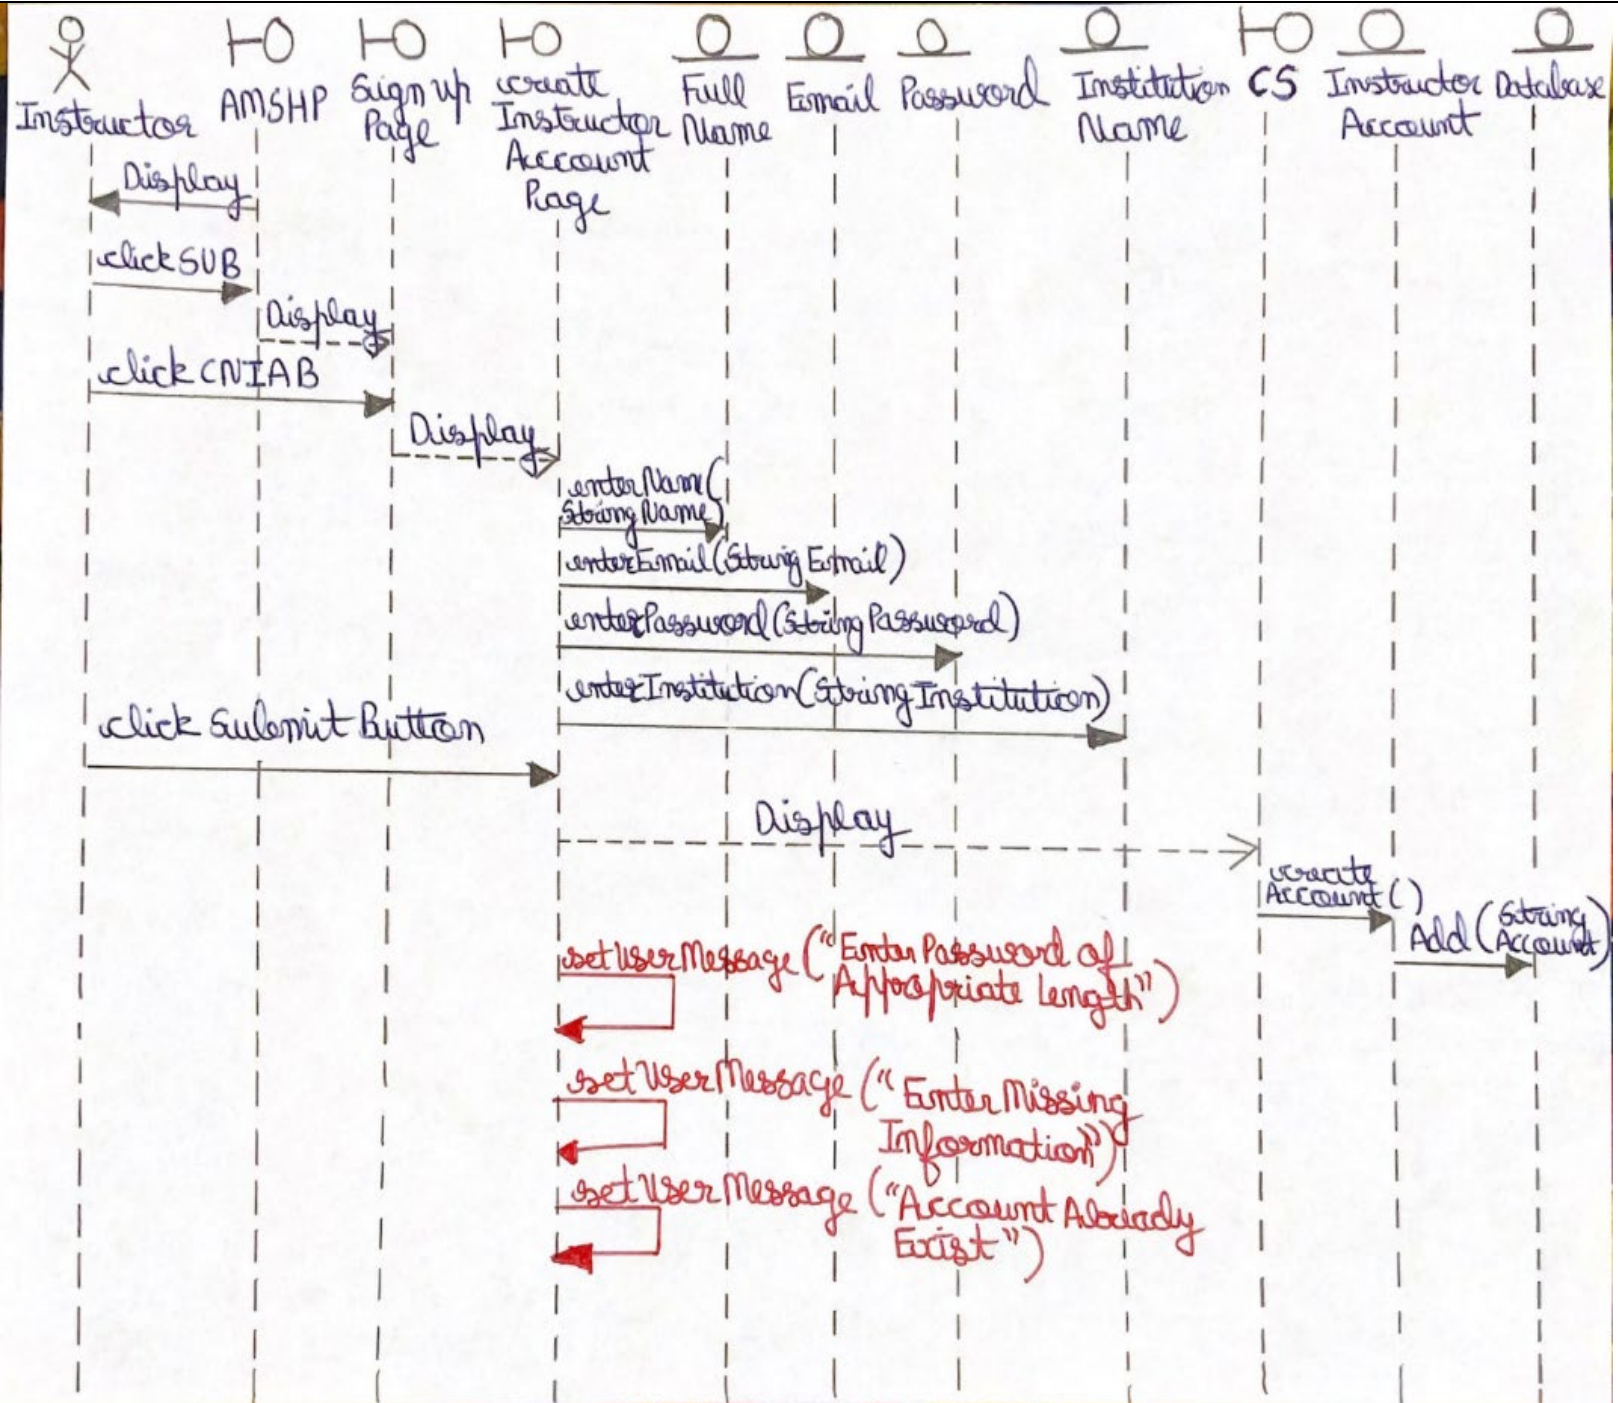 Instructor
AMSHP
Sign up
Page
create
Instructor
Account
Page
Full
Name
Email
Password
Institution
Name
CS
Instructor
Account
Database
Display
click SUB
Display
click CNIAB
Display
enterName(
String Name)
enterEmail(String Email)
enterPassword(String Password)
enterInstitution(String Institution)
click Submit Button
Display
create
Account()
Add(String
Account)
setUserMessage("Enter Password of
Appropriate Length")
setUserMessage("Enter Missing
Information")
setUserMessage("Account Already
Exist")